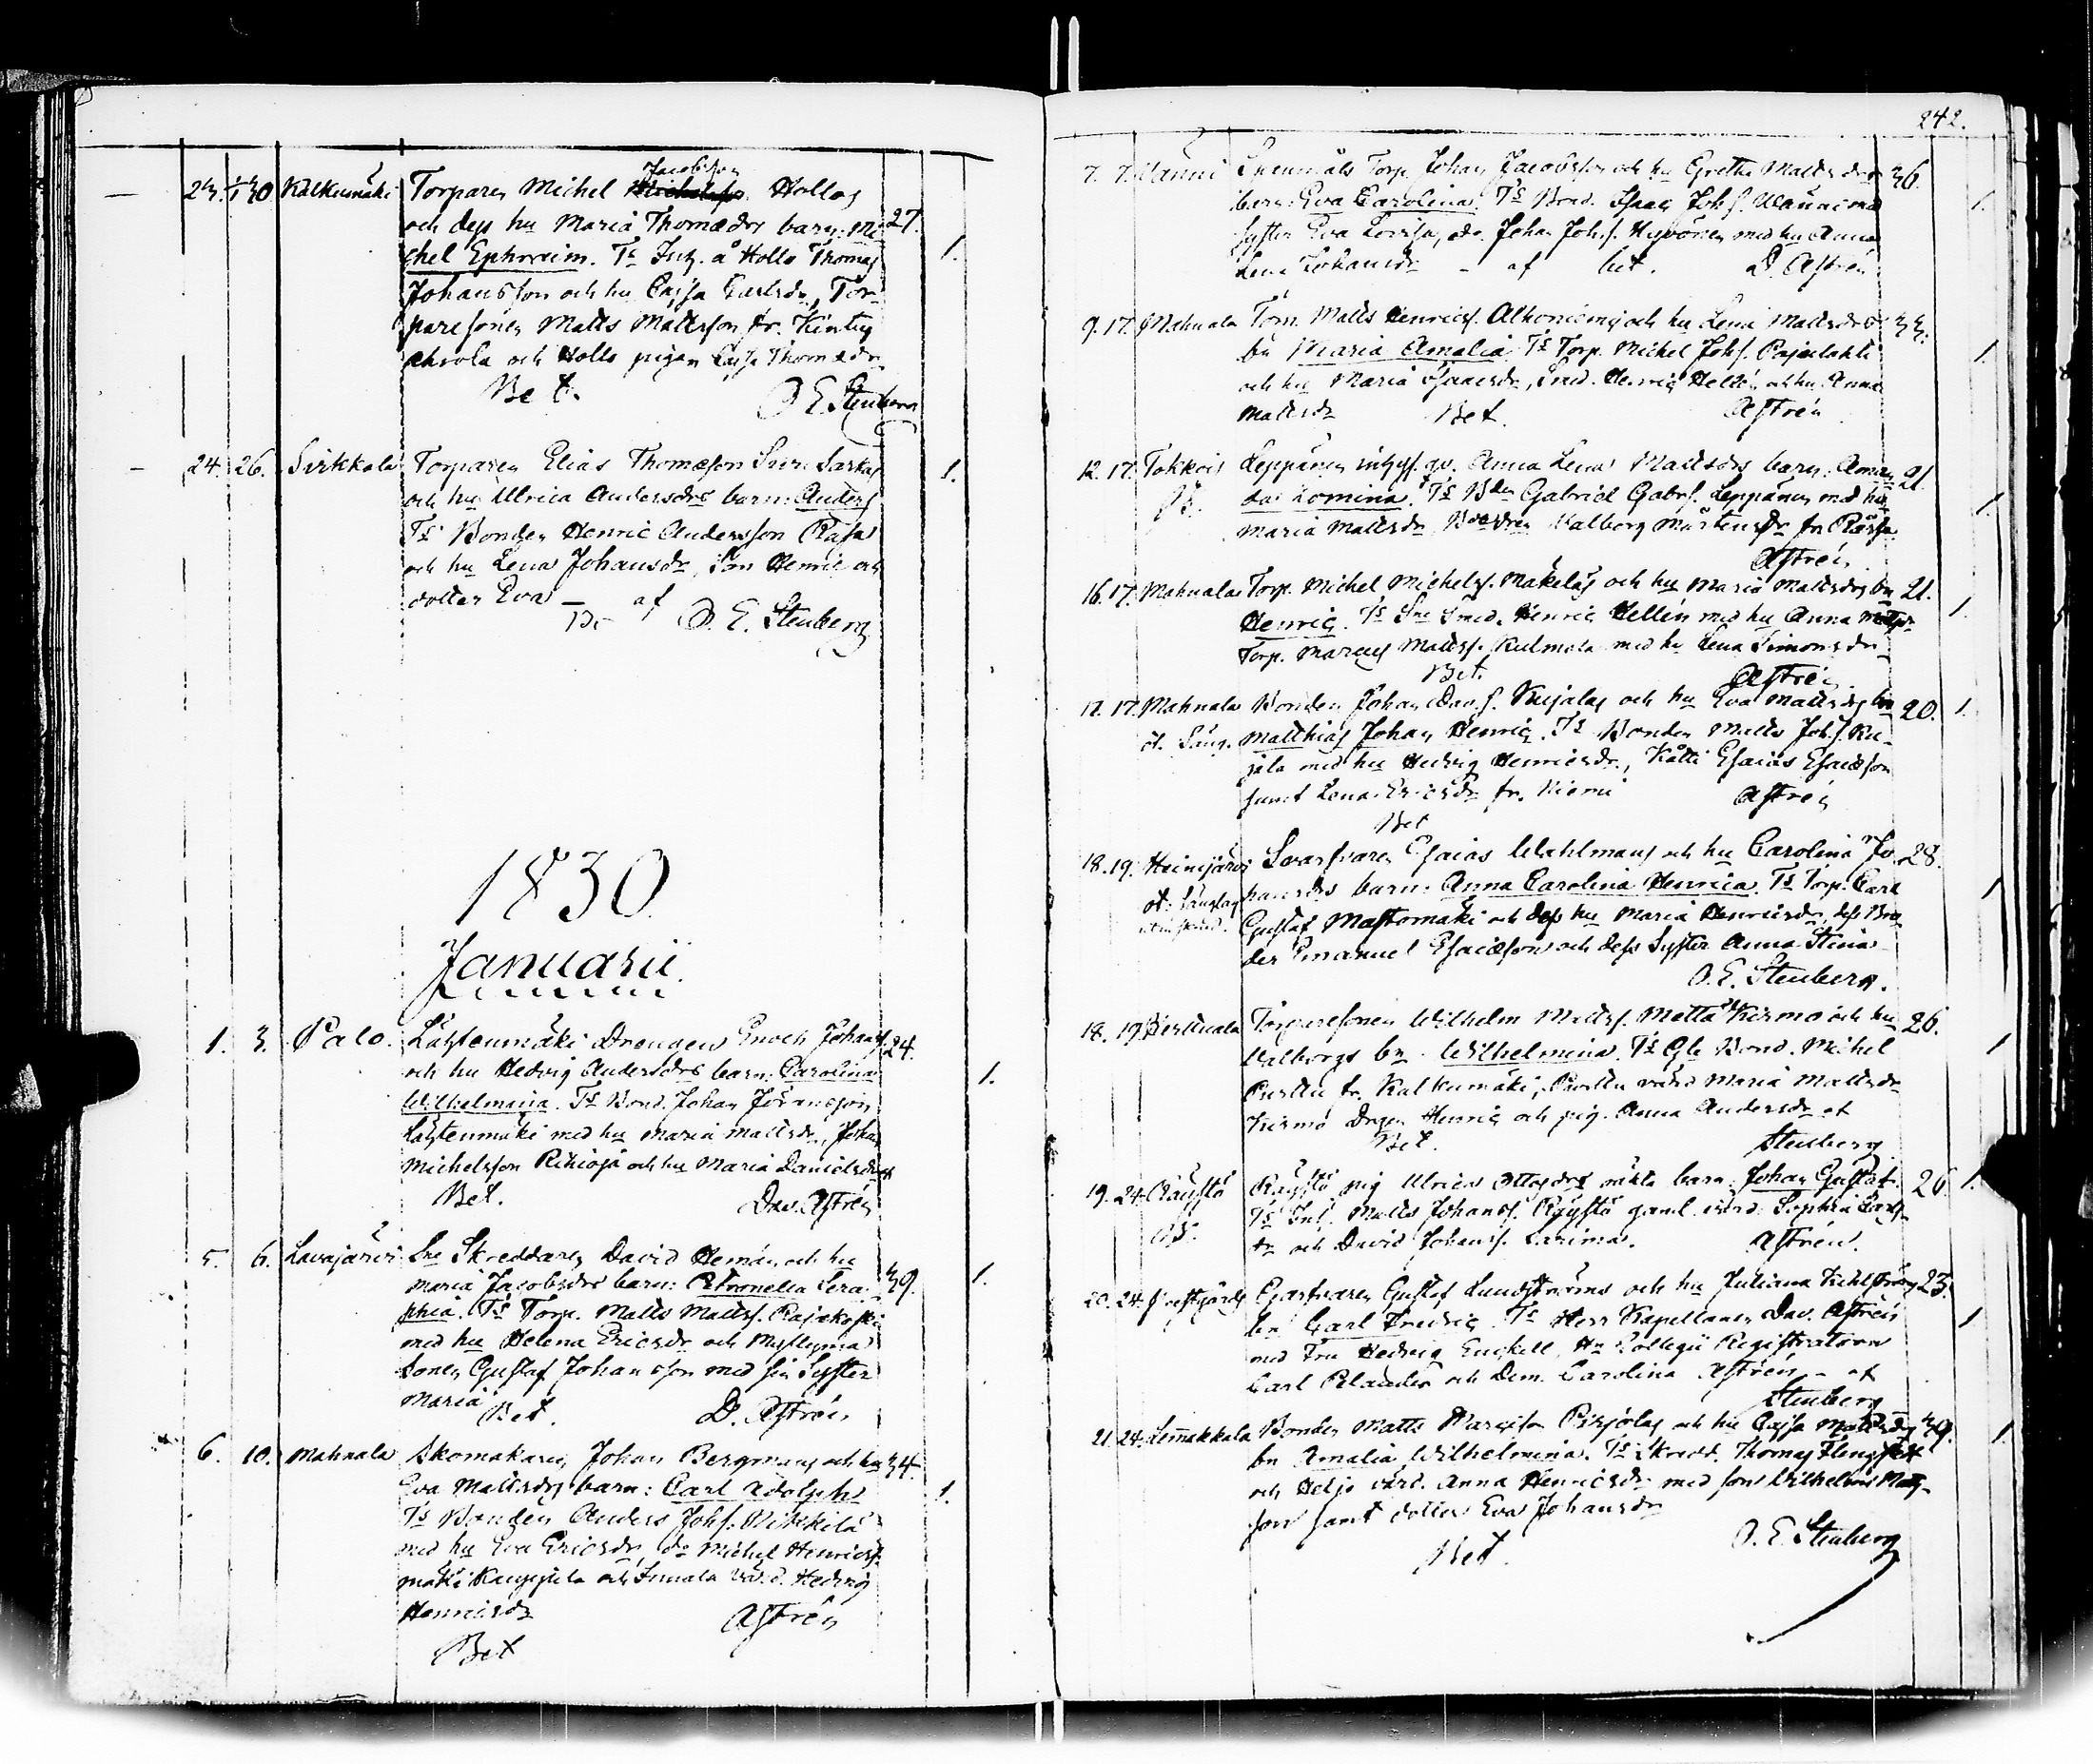 242.
23. 1/1 30 Kalkunmäki Torparen Michel Michelsson Jacobsson Hollos 27.
och dess hu Maria Thomædrs barn: Mi-
chel Ephraim. Ts Inh. å Hollo Thomas 1.
Johansson och hu Cajsa Carlsdr, Tor-
paresonen Matts Mattsson fr.
och Hollo pigan Cajsa Thomædr
Bet. O E Stenberg
24. 26. Sirkkala Torparen Elias Thomæson Sarkas 1.
och hu Ulrica Andersdrs barn: Anders
Ts Bonden Henric Andersson Rasa
och hu Lena Johansdr, Son Henric och
dotter Eva – af O. E. Stenberg
1830
Januarii.
1. 3. Palo. Drengen Enoch Johans. 24.
och hu Hedvig Andersdrs barn: Carolina 1.
Wilhelmina. Ts Bond. Johan Johansson
med hu Maria Mattsdr, Johan
Michelsson Rihioja och hu Maria Danielsdr
Bet. Dav. Astrén
5. 6. Lavajärvi Sne Skreddaren David Hemán och hu 39.
Maria Jacobsdrs barn: Petronella Sera- 1.
phia. Ts Torp. Matts Matts. Rajakoski
med hu Helena Ericsdr och
sonen Gustaf Johansson med sin Syster
Maria
Bet. D. Astrén
6. 10. Mahnala Skomakaren Johan Bergmans och hu 34.
Eva Mattsdrs barn: Carl Adolph 1.
Ts Bonden Anders Johs. Mikkilä
med hu Eva Ericsdr, do Michel Henrics.
och Innala värd. Hedvig
Henricsdr Astrén
Bet
7. 7. Torp. Johan Jacobsson och hu Gretha Mattsdrs 36.
barn: Eva Carolina. Ts Bond. Isaac Johs. med 1.
Syster Eva Lovisa, do. Johan Johs. Hyvönen med hu Anna
Lena Johansdr – af bet. D. Astrén
9. 17. Mahnala Torp. Matts Henrics. Alhoniemis och hu Lena Mattsdrs 33.
bn Maria Amalia. Ts Torp. Michel Johs. Pajulahti 1.
och hu Maria Isaacsdr, Smed. Henric Hellén och hu Anna
Mattsdr Bet. Astrén
12. 17. Tokkois Leppänen qv. Anna Lena Mattsdrs barn: Aman- 21.
da Lomina. Ts Bden Gabriel Gabrs. Leppänen med hu 1.
Maria Mattsdr Valborg Mårtensdr fr.
Astrén
16. 17. Mahnala Torp. Michel Michels. Mäkeläs och hu Maria Mattsdrs bn 21.
Henric. Ts Sne Smed. Henric Hellén med hu Anna Mattsdr 1.
Torp. Marcus Matts. Kulmala med hu Lena Simonsdr
Bet. Astrén
17. 17. Mahnala Bonden Johan Dav.s. Kujalas och hu Eva Mattsdrs bn 20. 1.
Matthias Johan Henric. Ts Bonden Matts Johs. Ku-
jala med hu Hedvig Henricsdr, Esaias Esaiæson
samt Lena Ericsdr fr. Niemi Astrén
Bet
18. 19. Heinijärvi Svarfvaren Esaias Wahlmans och hu Carolina Jo- 28.
hansdrs barn: Anna Carolina Henrica. Ts Torp. Carl 1
Gustaf Mastomäki och dess hu Maria Henricsdr, dess Bro-
der Emanuel Esaiæson och dess Syster Anna Stina
O. E. Stenberg.
18. 19. Perttuala Torparesonen Wilhelm Matts. och hu 26.
Valborgs bn Wilhelmina. Ts Bond. Michel 1
Perttu fr. Kalkunmäki, Perttu värd. Maria Mattsdr
Kirmo Drgen Henric och pig. Anna Andersdr af
Bet. Stenberg
19. 24. Räystö Räystö pig Ulrica Ottosdrs oäkta barn: Johan Gustaf. 26. 1.
Ts Inh. Matts Johans. Räystö gaml. värd: Sophia Carls-
dr och David Johans. Astrén.
20. 24. Prestgård Garfvaren Gustaf Lundströms och hu Juliana 23.
bn Carl Fredric. Ts Herr Kapellanen Dav. Astrén 1
med Fru Hedvig Enckell, Hr Collegii Registratorn
Carl Pelander och Dem. Carolina Astrén – af
Stenberg
21. 24. Lemmakkala Bonden Matts Marcusson och hu Cajsa Mattsdrs 39.
bn Amalia Wilhelmina. Ts Skredd. Thomas 1.
och Heljo värd. Anna Henricsdr med son Wilhelm Matts-
son samt dotter Eva Johansdr
Bet. O. E. Stenberg